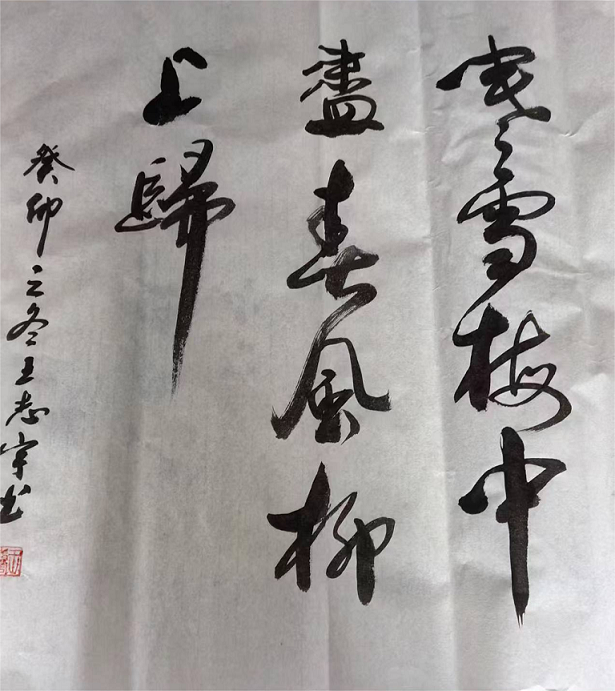 寒雪梅中
盡春風柳
上歸
癸卯之冬王志宇书